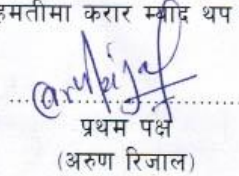 हमतीमा करार म्याद थप
प्रथम पक्ष
(अरुण रिजाल)